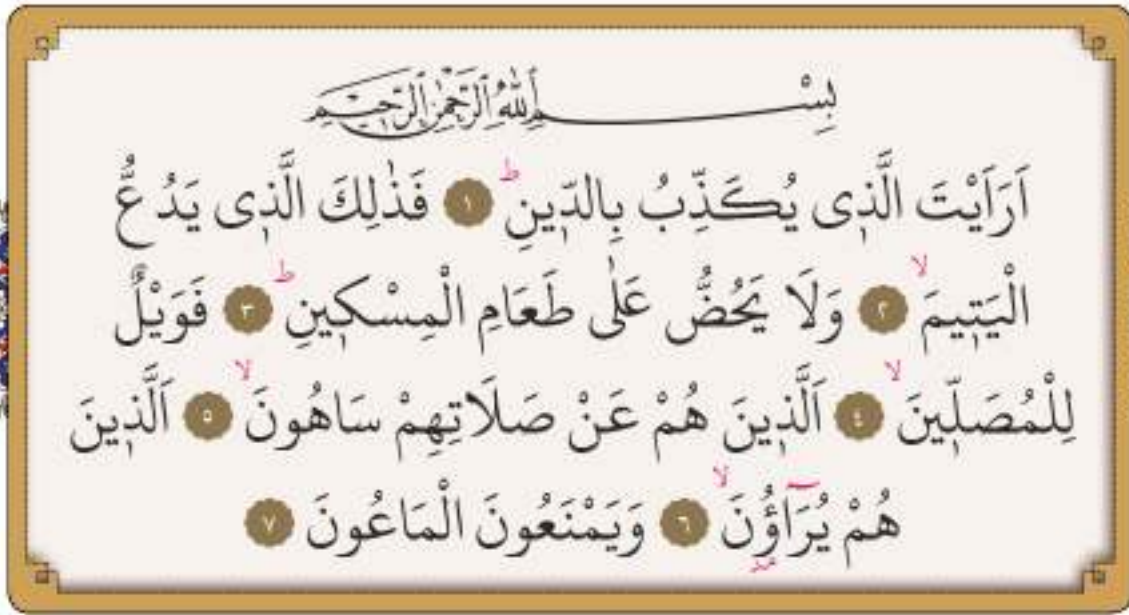 بِسْمِ اللّٰهِ الرَّحْمٰنِ الرَّحِيمِ
اَرَاَيْتَ الَّذٖى يُكَذِّبُ بِالدّٖينِۜ ﴿١﴾ فَذٰلِكَ الَّذٖى يَدُعُّ
الْيَتٖيمَۙ ﴿٢﴾ وَلَا يَحُضُّ عَلٰى طَعَامِ الْمِسْكٖينِۜ ﴿٣﴾ فَوَيْلٌ
لِلْمُصَلّٖينَۙ ﴿٤﴾ اَلَّذٖينَ هُمْ عَنْ صَلَاتِهِمْ سَاهُونَۙ ﴿٥﴾ اَلَّذٖينَ
هُمْ يُرَآؤُنَۙ ﴿٦﴾ وَيَمْنَعُونَ الْمَاعُونَ ﴿٧﴾